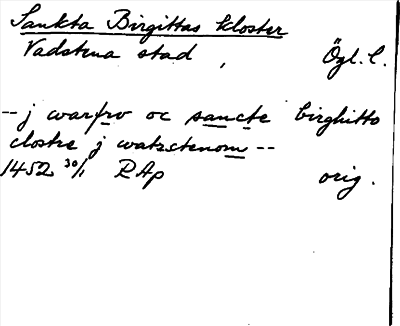 Sankta Birgittas kloster
Vadstena stad, Ögl. l.
-- j warfrv oc sancte birghitto
clostre j watzstenom --
1452 30/1 RAp orig.